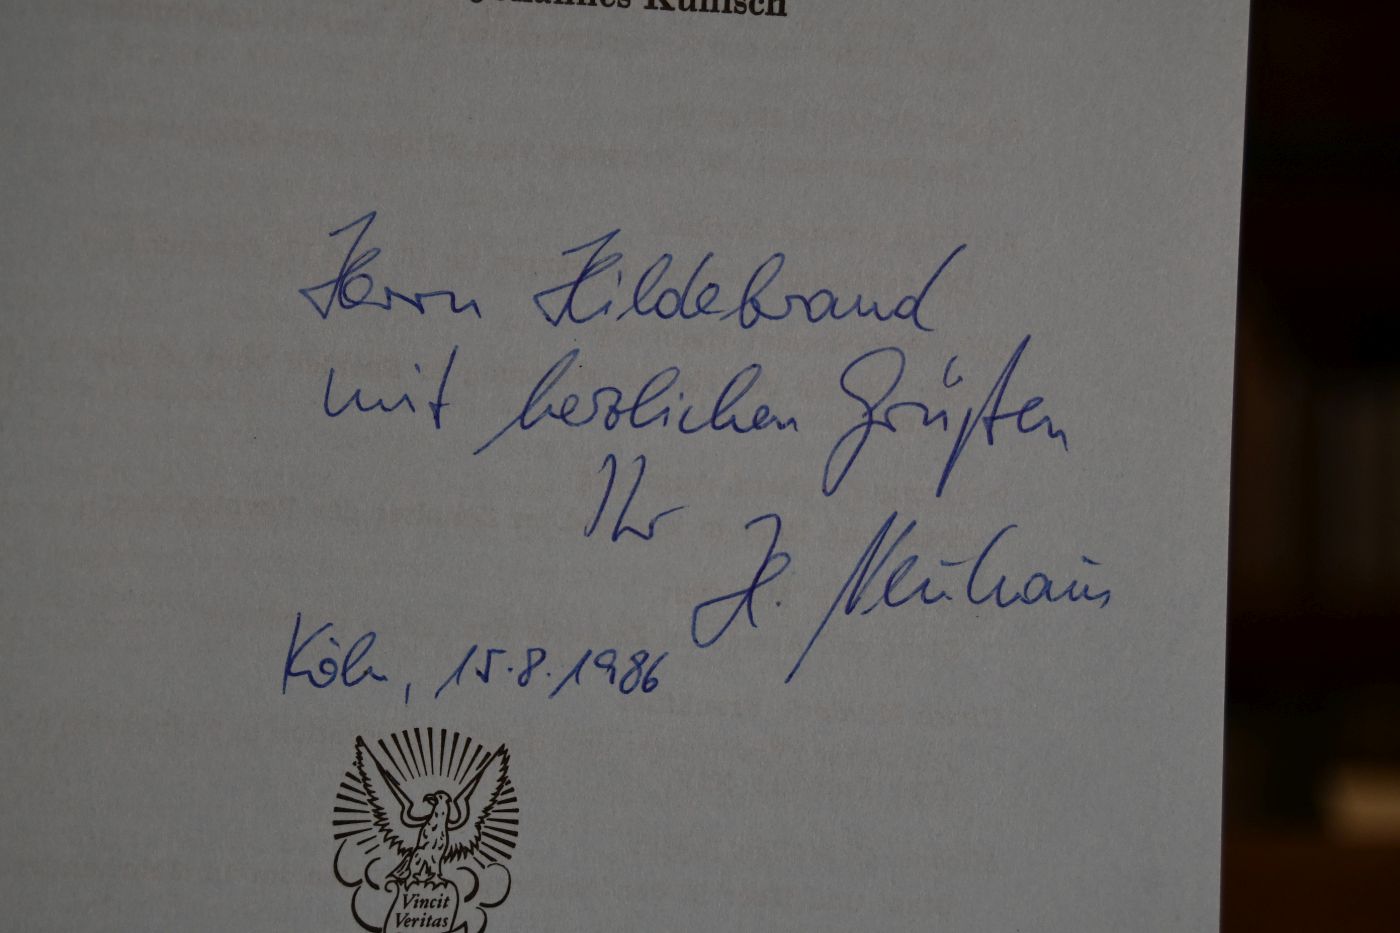 Johannes Kunisch
Herrn Hildebrand
mit herzlichen Grüßen
Ihr
H. Neuhaus
Köln, 15.8.1986
Vincit
Veritas